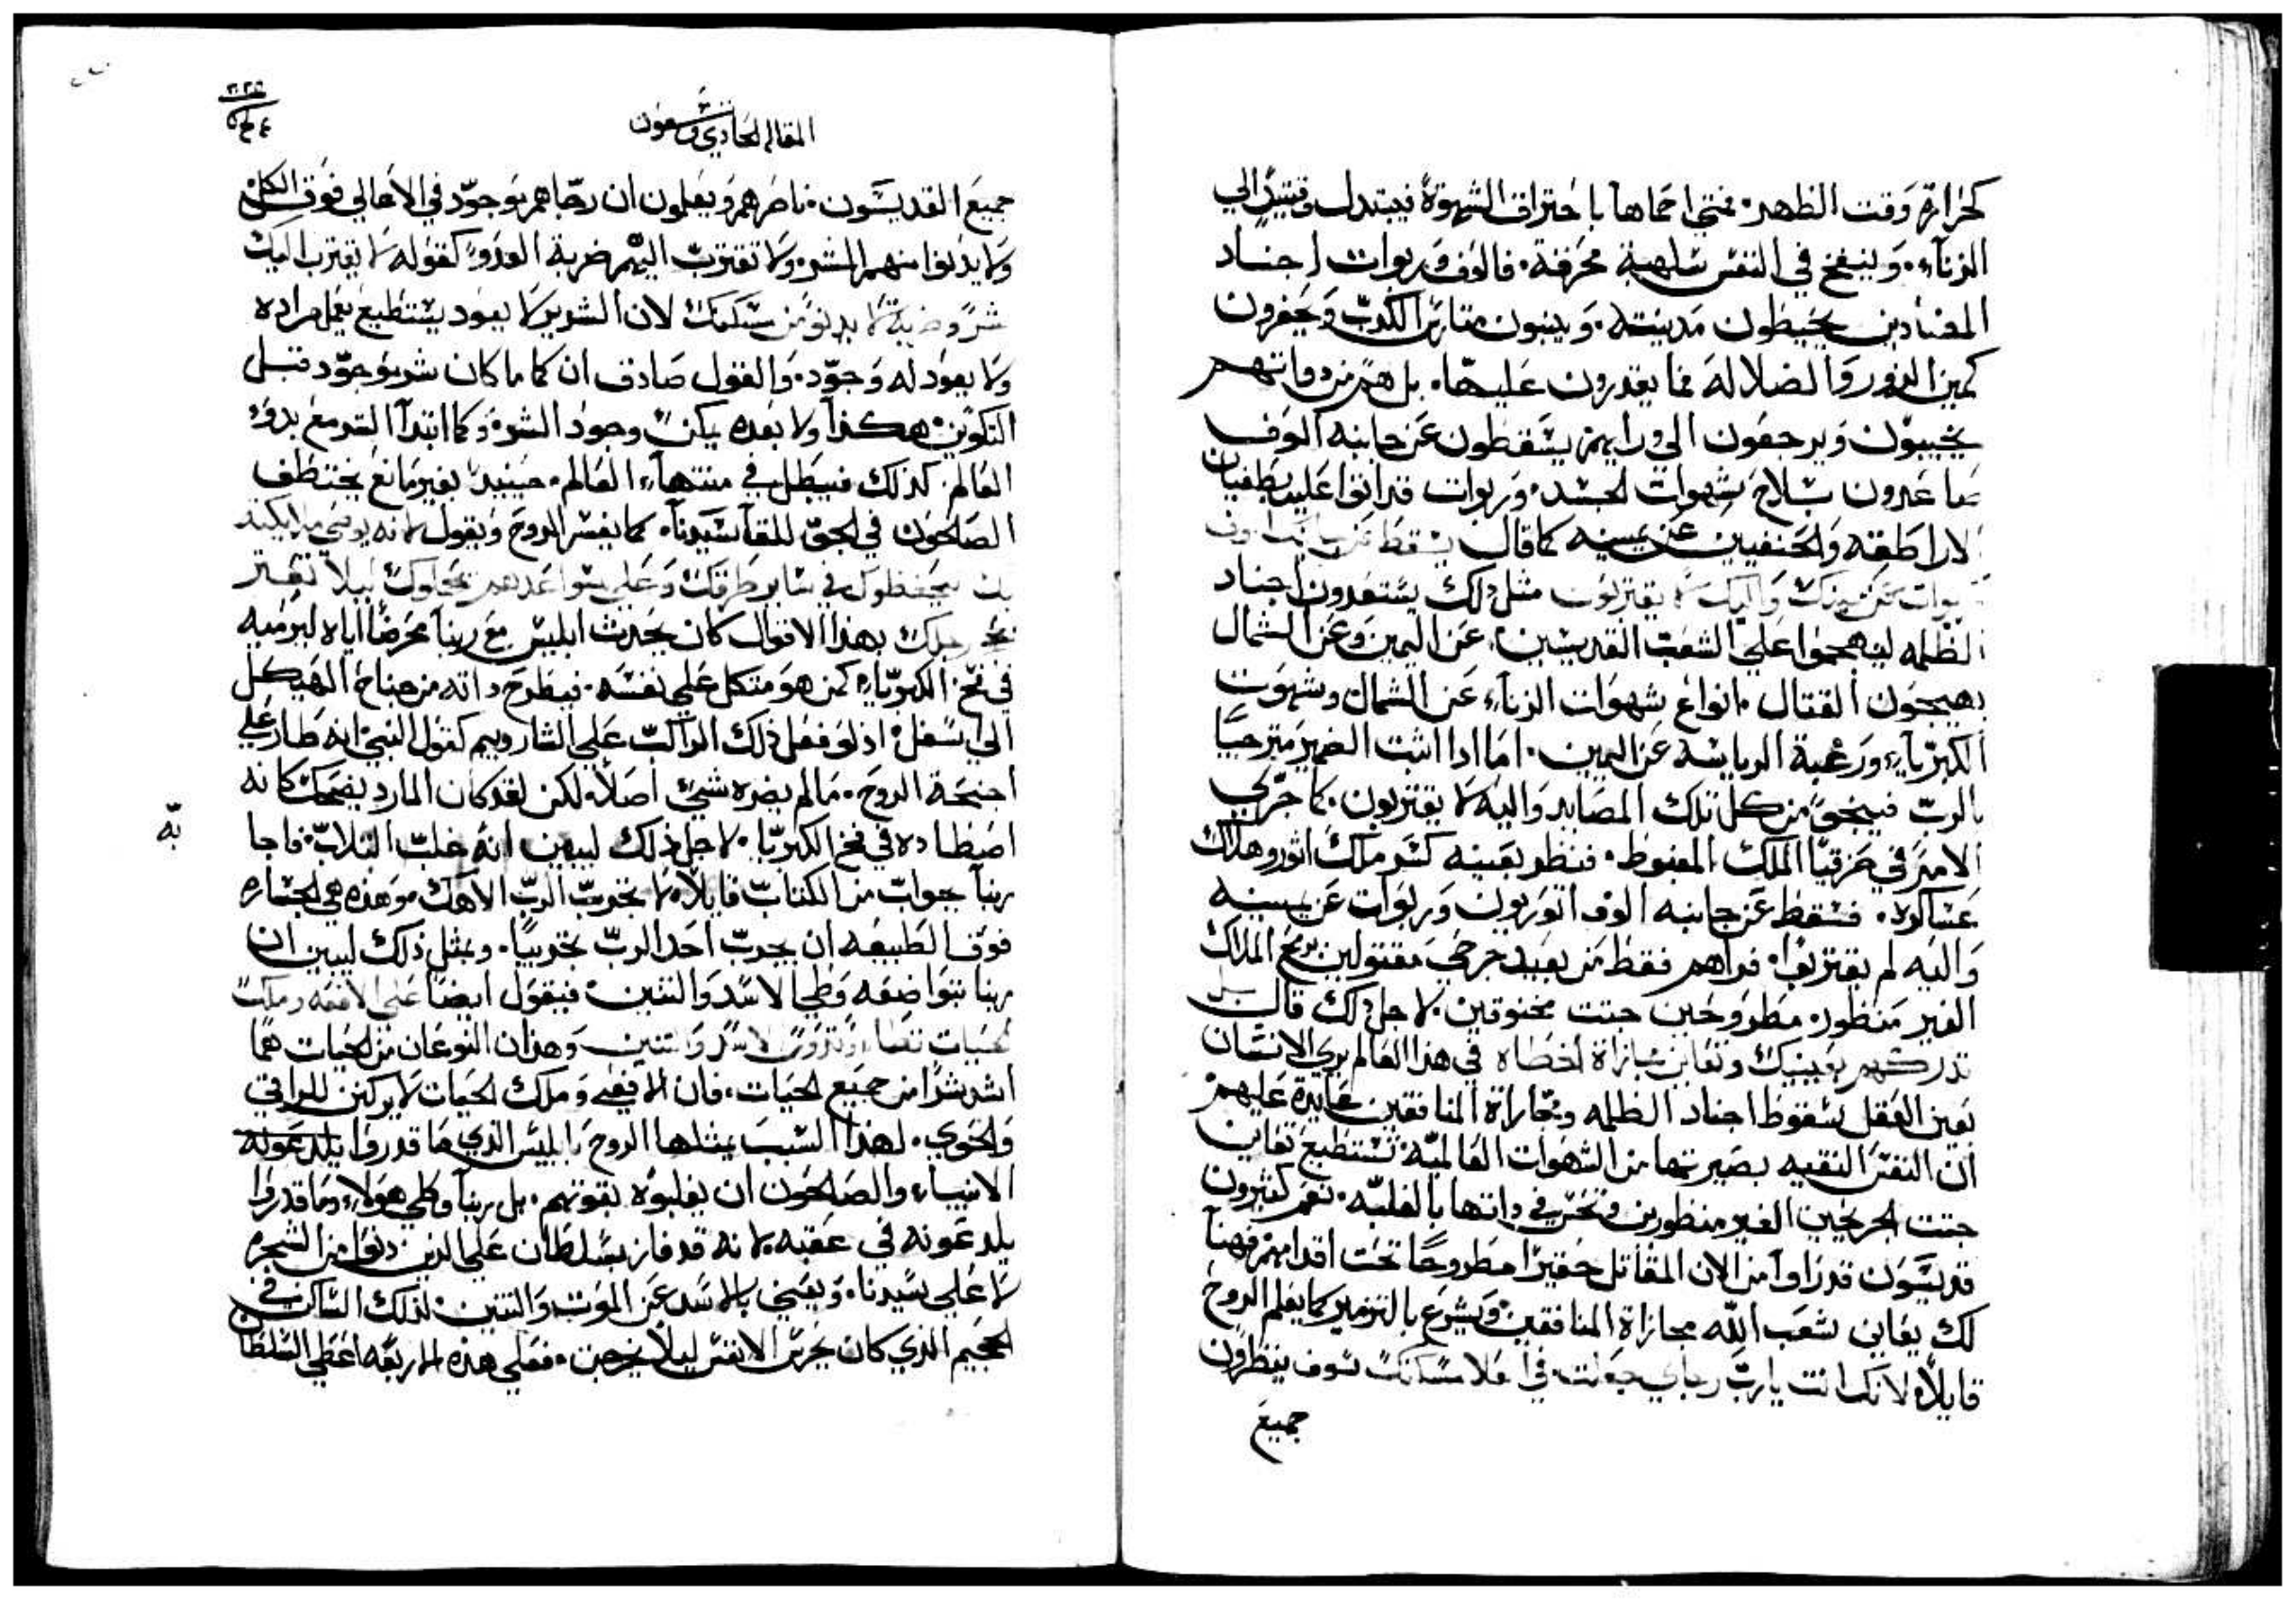 كحرارة وقت الظهر. فمتى احماها باحتراق الشهوة فيبتدل وقتيدٍ الي
الزناء. وينفخ في النفس شلهبة محرقة. فالوف وربوات اجناد
المضادين يحيطون مدينته. ويبنون متارس الكدب ويحفرون
كمين الزور والضلالة فما يقدرون عليها. بل هم من دواتهم
يخيبون ويرجعون الي ورايهم يسقطون عن جانبه الوف
بسلاح شهوات الجسد. وربوات قد اتوا عليه
الاراطقه والحنفيين عن يمينه كما قال يسقط عن
يمينك واليك لا يقتربون مثل ذلك يستعدون اجناد
الظلمه ليهجموا على الشعب القديسين. عن اليمين وعن الشمال
يهيجون القتال. انواع شهوات الزناء عن الشمال وشهوت
الكبرياء ورغبة الرياسه عن اليمين. اما ادا اثبت الضمير مترجيًا
بالرب فينجو من كل تلك المصايد واليه لا يقتربون. كما جري
الامر في حزقيا الملك المغبوط. فنظر بعينه كسر ملك اثور وهلاك
عساكره. فسقط عن جانبه الوف اثوريون وربوات عن يمينه
واليه لم يقتربوا. فراهم فقط من بعيد جرحي مقتولين برمح الملاك
الغير منظور. مطروحين جتت مخنوقين. لاجل ذلك قال بل
تدركهم بعينيك وتعاين مجازاة الخطاه في هذا العالم يري الانسان
بعين العقل سقوط اجناد الظلمه ومجازاة المنافقين عايدة عليهم
ان النفس النقيه بصيرتها من الشهوات العالمية. تستطيع تعاين
جتت الجريحين الغير منظورين وتحس في داتها بالغلبه. نعم كثيرون
قديسون قد راوا من الان المقاتل حقيرًا مطروحًا تحت اقدامهم فهنا
لك يعاين شعب الله مجازاة المنافقين ويشرع بالتزمير كما يعلم الروح
قايلاً لانك انت يارب رجاي جعلت في اعلا مسكنك سوف ينظرون
جميع
المقاله الحادي وتسعون
جميع القديسون. ناصرهم ويعلون ان رجاهم موجود في الاعالي فوق الكل
ولا يدنوا منهم الشر. ولا تقترب اليهم ضربة العدو. كقوله لا يقترب اليك
شر وضربة لا يدنو من مسكنك لان الشرير لا يعود يستطيع يعمل مراده
ولا يعود له وجود. والقول صادق ان كما ما كان شر موجود قبل
التكوين هكذا ولا بعده يمكن وجود الشر. وكما ابتدا الشر مع بدو
العالم. كذلك فسيبطل في منتهاء العالم. حينيدٍ بغير مانع يختطف
الصالحون في الجو للقا سيدنا. كما يفسر الروح ويقول لانه يوصي ملايكته
بك ليحفظوك في ساير طرقك وعلى سواعدهم يحملوك ليلا تعتر
بحجر رجلك بهذا الاقوال كان يحدث ابليس مع ربنا محرضًا اياه ليرميه
في فخ الكبرياء كمن هو متكل علي نفسه. فيطرح داته من جناح الهيكل
الي اسفل. اذ لو فعل ذلك الراكب علي الشاروبيم كقول النبي انه طار علي
اجنحة الروح. ما لم يضره شيء اصلاً. لكن لقد كان المارد يضحك كانه
اصطاده في فخ الكبريا. لاجل ذلك ليبين انه غلب الثلاب. فاجا
به
ربنا جواب من الكتاب قايلاً. لا تجرب الرب الاهك. وهذه هي الجساره
فوق الطبيعه ان يجرب احد الرب تجريبًا. وبمثل ذلك ليبين ان
ربنا بتواضعه وطي الاسد والتنين. فيقول ايضًا على الافعه وملك
الحيات تطا. وتدوس الاسد والتنين وهذان النوعان من الحيات هما
اشد شرًا من جميع الحيات. فان الافعي وملك الحيات لا يركنن للراقي
والحوي. لهذا السبب يمثلها الروح بابليس الذي ما قدروا يلدعونه
الانبياء والصالحون ان يغلبوه بقوتهم. بل ربنا وطي هولاء وما قدروا
يلدعونه في عقبه لانه قد فاز بسلطان علي الذين دنوا من الشجره
لا علي سيدنا. ويعني بالاسد عن الموت والتنين. لذلك الساكن في
الجحيم الذي كان يحرس الانفس ليلا يخرجن. فعلي هذه الاربعه اعطي السلطان